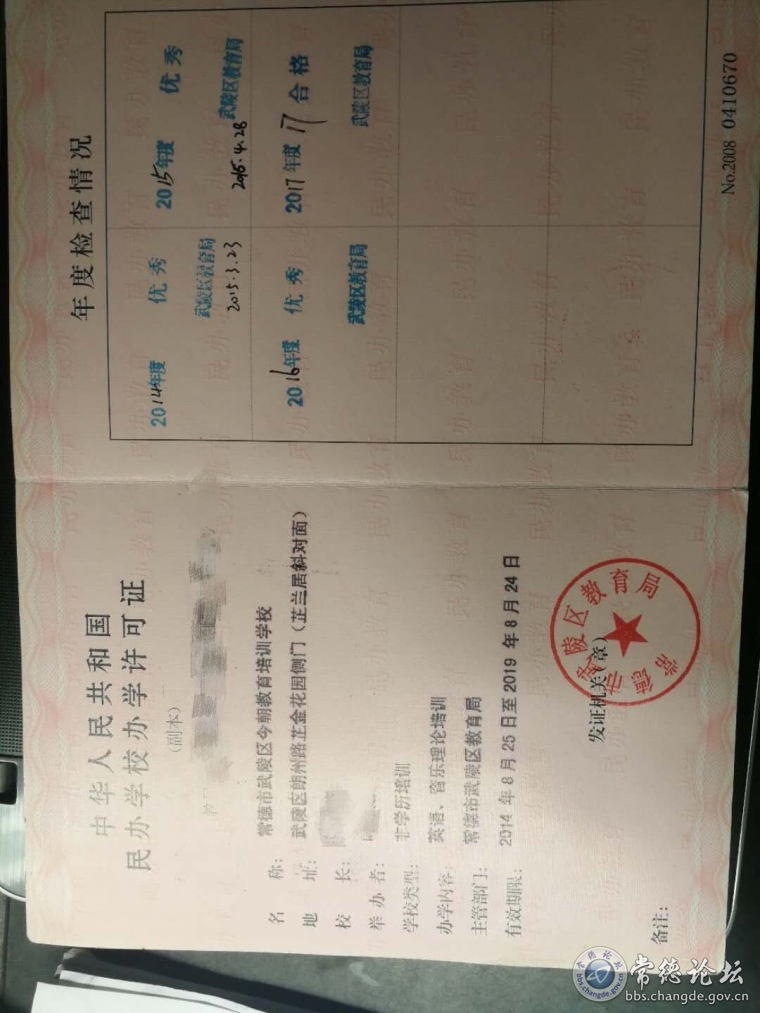 中华人民共和国
民办学校办学许可证
(副本)
名 称: 常德市武陵区今朝教育培训学校
地 址: 武陵区朗州路芷金花园侧门(芷兰居斜对面)
校 长:
举 办 者:
学校类型: 非学历培训
办学内容: 英语、音乐理论培训
主管部门: 常德市武陵区教育局
有效期限: 2014 年 8 月 25 日至 2019 年 8 月 24 日
发证机关(章)
常德市武陵区教育局
备注:
年度检查情况
2014年度 优秀
武陵区教育局
2015.3.23
2015年度 优秀
武陵区教育局
2016.4.28
2016年度 优秀
武陵区教育局
2017年度 17合格
武陵区教育局
No.2008 0410670
常德论坛
bbs.changde.gov.cn